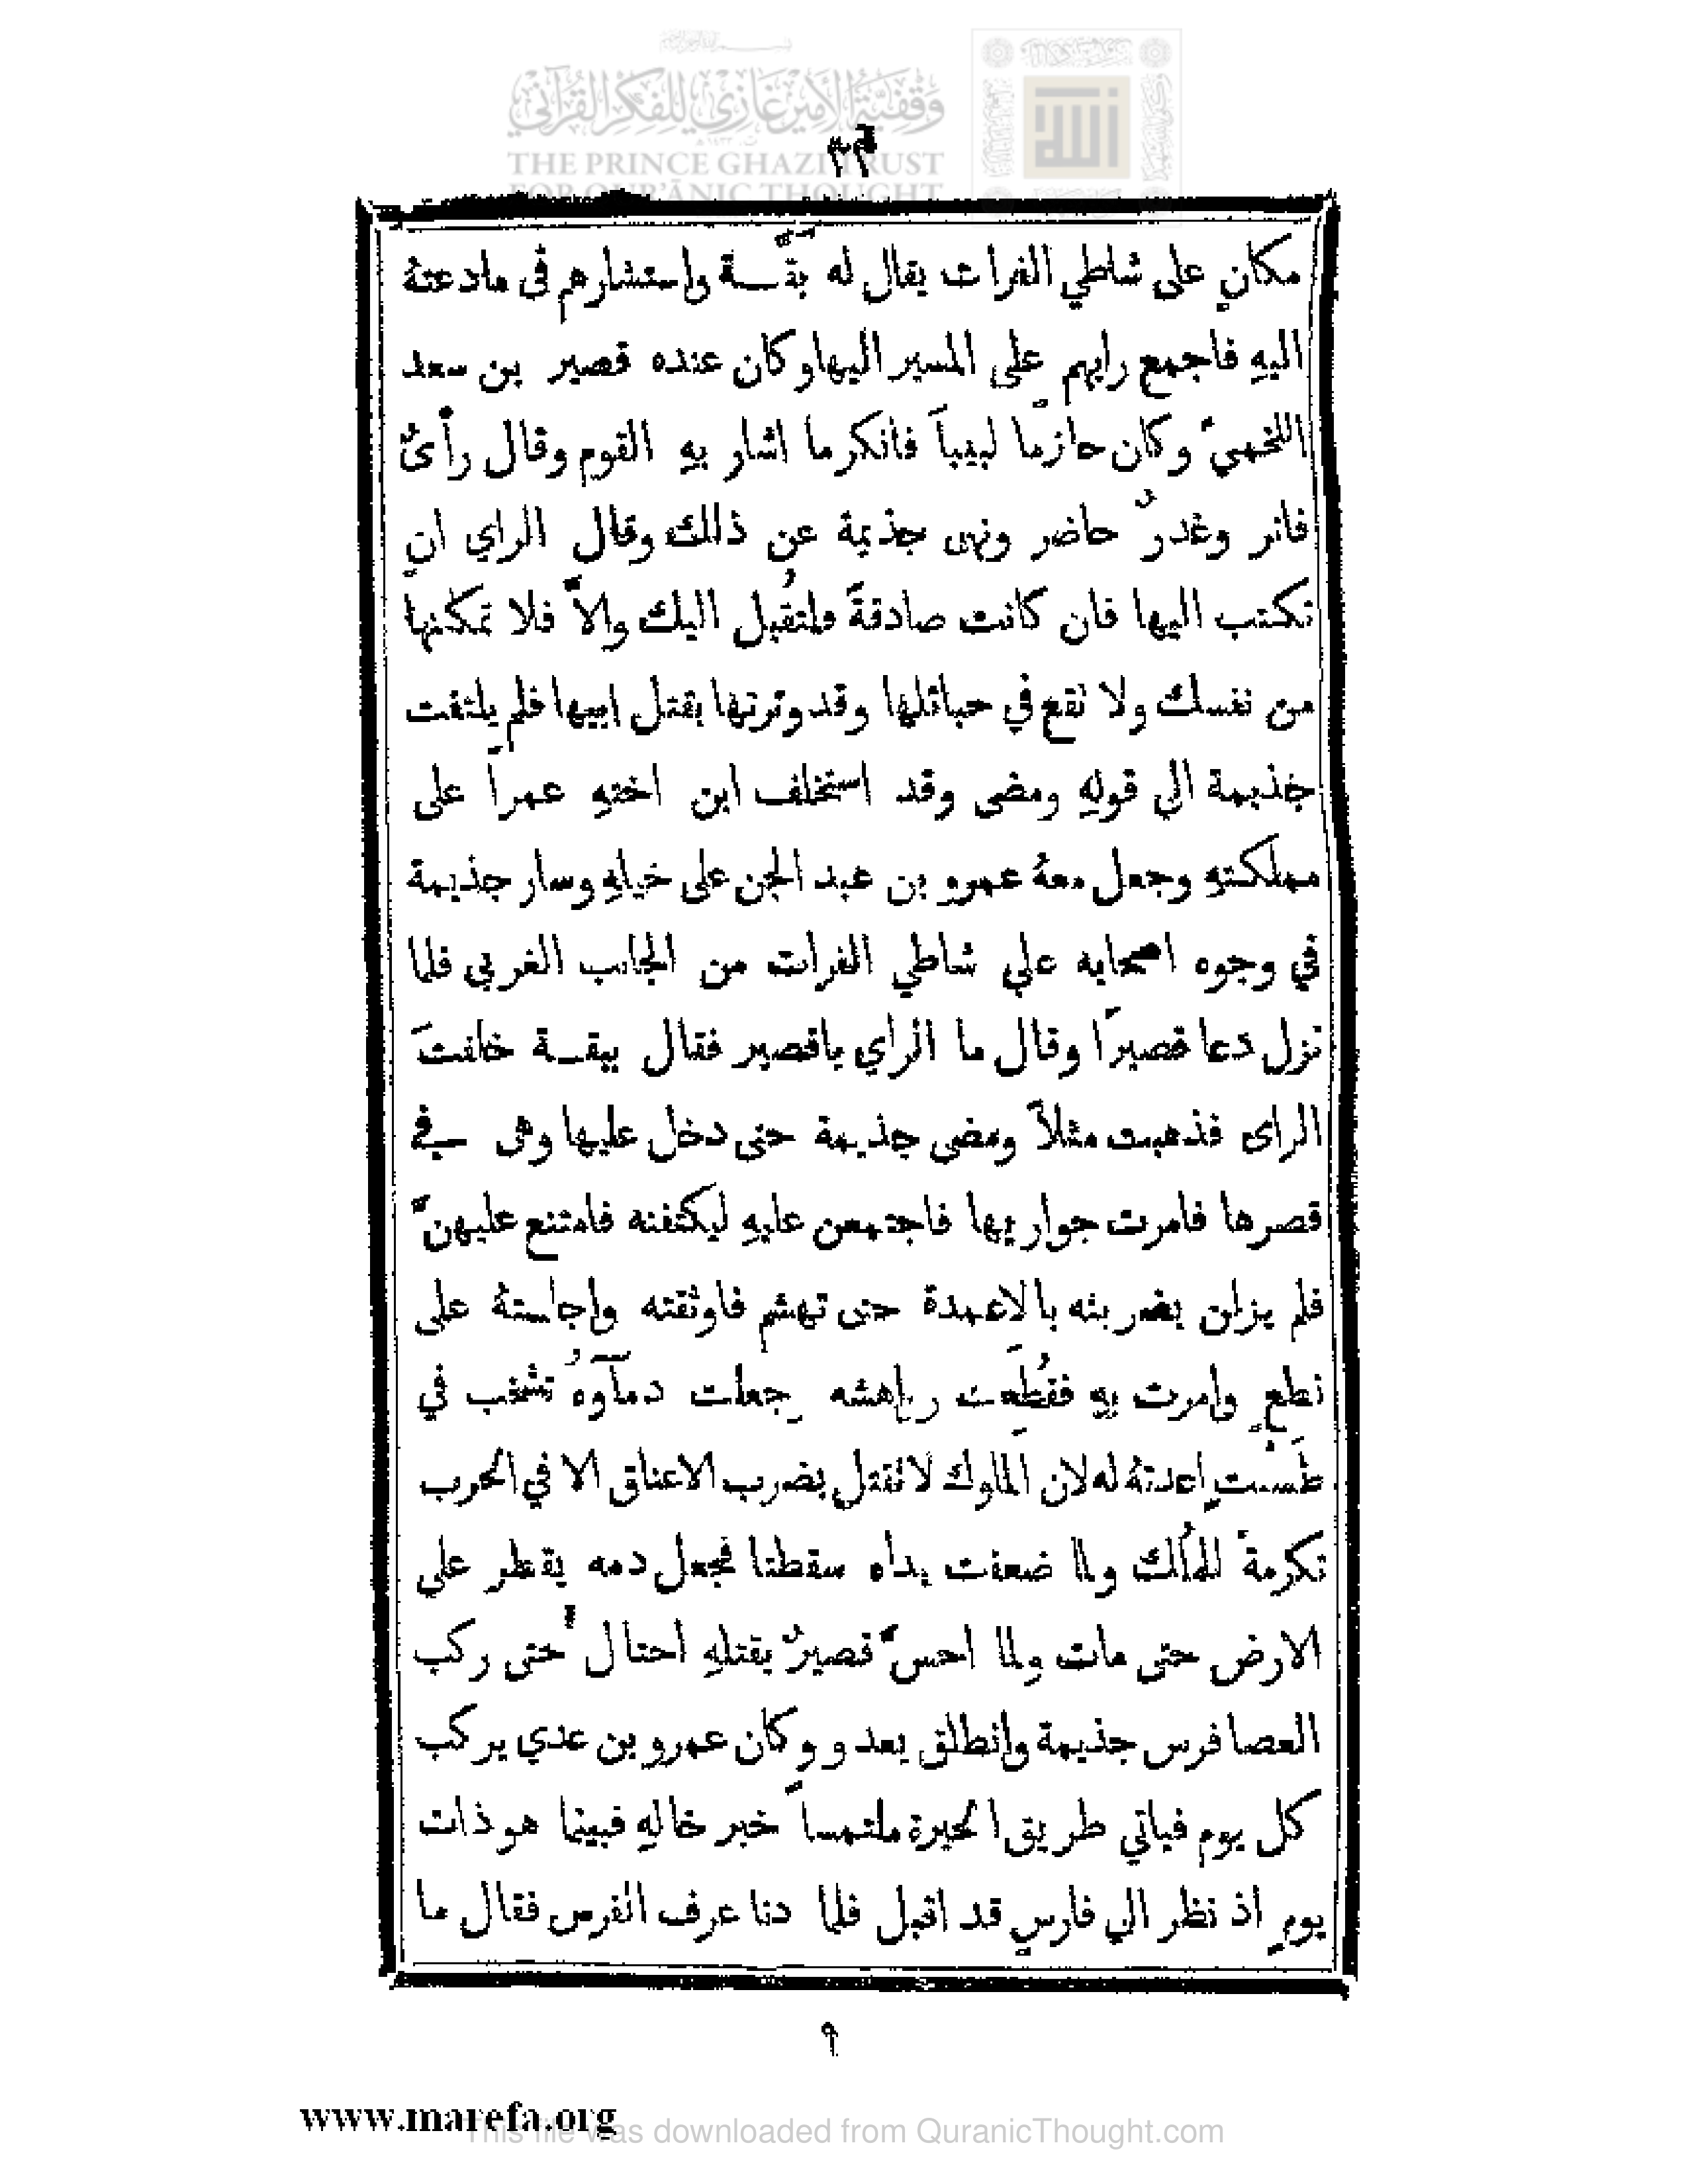 وقفية الأمير غازي للفكر القرآني
THE PRINCE GHAZI TRUST
FOR QUR'ĀNIC THOUGHT
٣٣
مكانٍ على شاطي الفرات يقال له بَقَّـة واستشارهم في مادعتهُ
اليهِ فاجمع رايهم على المسير اليها وكان عنده قصير بن سعد
اللخميّ وكان حازمًا لبيباً فانكر ما اشار بهِ القوم وقال رأىٌ
فاتر وغدرٌ حاضر ونهى جذيمة عن ذلك وقال الراي ان
تكتب اليها فان كانت صادقةً فلتُقبل اليك والاَّ فلا تمكنها
من نفسك ولا نقع في حبائلها وقد وترتها بقتل ابيها فلم يلتفت
جذيمة الى قولهِ ومضى وقد استخلف ابن اختهِ عمراً على
مملكتهِ وجعل معهُ عمرو بن عبد الجن على خيلهِ وسار جذيمة
في وجوه اصحابه علي شاطي الفرات من الجانب الغربي فلما
نزل دعا قصيرًا وقال ما الراي ياقصير فقال ببقـة خلفتَ
الراى فذهبت مثلاً ومضى جذيمة حتى دخل عليها وهى في
قصرها فامرت جواريها فاجتمعن عليهِ ليكتفنه فامتنع عليهنَّ
فلم يزلن يضربنه بالاعمدة حتى تهشم فاوثقته واجلستهُ على
نطعٍ وامرت بهِ فقُطِّعت رواهشه وجعلت دمآوهُ تشخب في
طَستٍ اعدتهُ له لان الملوك لا تقتل بضرب الاعناق الا في الحرب
تكرمةً للمُلك ولما ضعفت يداه سقطتا فجعل دمه يقطر على
الارض حتى مات ولما احسّ قصيرٌ بقتلهِ احتال حتى ركب
العصا فرس جذيمة وانطلق يعدو وكان عمرو بن عدي يركب
كل يوم فياتي طريق الحيرة ملتمساً خبر خالهِ فبينما هو ذات
يومٍ اذ نظر الي فارسٍ قد اقبل فلما دنا عرف الفرس فقال ما
٩
www.marefa.org
This file was downloaded from QuranicThought.com